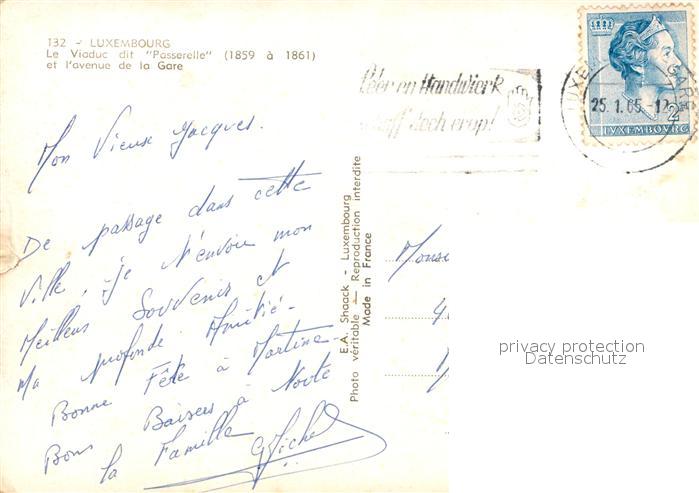 132 - LUXEMBOURG
Le Viaduc dit "Passerelle" (1859 à 1861)
et l'avenue de la Gare
Léier en Handwierk
doch erop!
25.1.65-12
GARE
2F
LUXEMBOURG
Mon Vieux Jacques.
De passage dans cette
Ville, je t'envoie mon
Meilleur Souvenir et
Ma profonde Amitié.
Bonne Fête à Martine
Bons Baisers à Toute
la Famille
GMichel
E.A. Shaack - Luxembourg
Photo véritable - Reproduction interdite
Made in France
privacy protection
Datenschutz